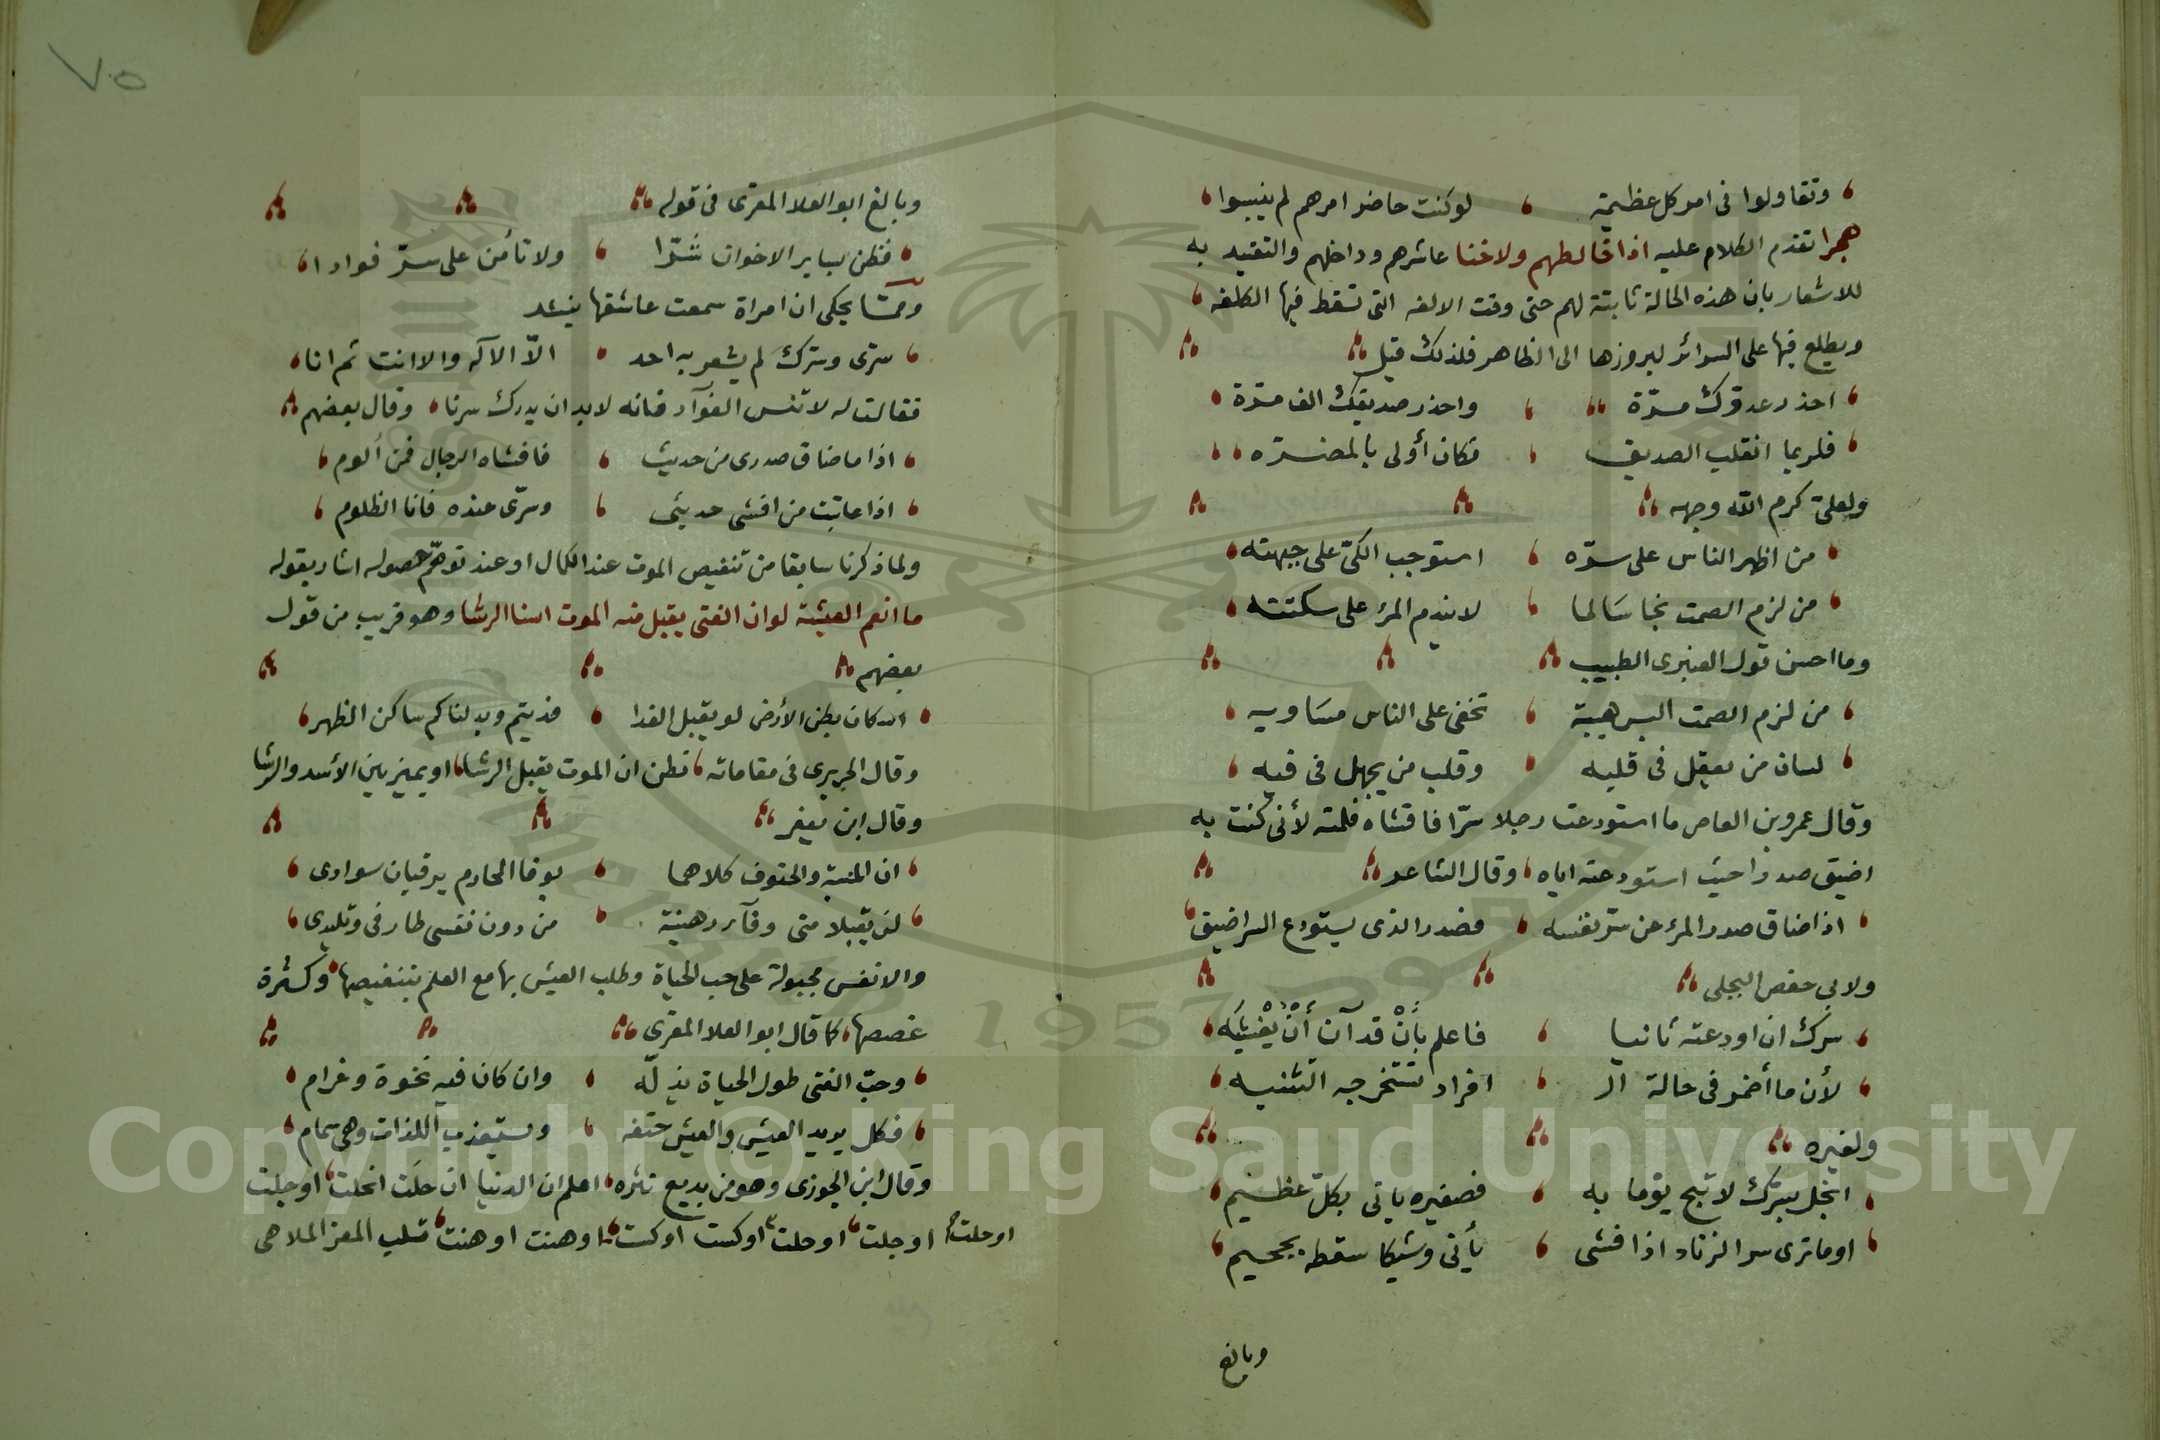 وتقاولوا فى امر كل عظيمة لو كنت حاضر امرهم لم ينبسوا
هجرا تقدم الكلام عليه اذا خالطهم ولاخنا عاشرهم وداخلهم والتقييد به
للاشعار بان هذه الحالة ثابتة لهم حتى وقت الالفه التى تسقط فيها الكلفه
ويطلع فيها على السرائر لبروزها الى الظاهر فلذلك قيل
احذر عدوك مرّة واحذر صديقك الف مرّة
فلربما انقلب الصديق فكان أولى بالمضرّه
ولعلىّ كرم الله وجهه
من اظهر الناس على سرّه استوجب الكىّ على جبهته
من لزم الصمت نجا سَالما لا يندم المرء على سكتته
وما احسن قول العنبرى الطبيب
من لزم الصمت البس هيبة تخفى على الناس مسَاويه
لسان من يعقل فى قلبه وقلب من يجهل فى فيه
وقال عمرو بن العاص ما استودعت رجلا سرّا فافشاه فلمته لأنى كنت به
اضيق صدرا حيث استودعته اياه وقال الشاعر
اذا ضاق صدر المرء عن سرّ نفسه فصدر الذى يستودع السر اضيق
ولابى حفص البجلى
سرّك ان اودعته ثانيا فاعلم بأنْ قد آن أنْ يفشيَه
لأن ما أضمر فى حالة الـ افراد تستخرجه التثنيه
ولغيره
ابخل بسرّك لا تبح يوما به فصغيره ياتى بكلّ عظيم
اوما ترى سر الزناد اذا فشى يأتى وشيكا سقطه بجحيم
وبالغ
٧٥
وبالغ ابو العلا المعرّى فى قوله
فظن بساير الاخوان شرّا ولا تأمن على سرّ فوادا
وممّا يحكى ان امراة سمعت عاشقها ينشد
سرّى وسرّك لم يشعر به احد الاّ الآله والا انت ثم انا
فقالت له لا تنس القوّاد فانه لابد ان يدرك سرنا وقال بعضهم
اذا ما ضاق صدرى من حديث فافشاه الرجال فمن ألوم
اذا عاتبت من افشى حديثى وسرّى عنده فانا الظلوم
ولما ذكرنا سابقا من تنغيص الموت عند الكمال او عند توهّم حصوله اشار بقوله
ما انعم العيشة لو ان الفتى يقبل منه الموت اسنا الرشا وهو قريب من قول
بعضهم
اسكان بطن الأرض لو يقبل الفدا فديتم وبدلناكم ساكن الظهر
وقال الحريرى فى مقاماته فظن ان الموت يقبل الرشا او يميز بين الأسد والرشا
وقال ابن يعفر
ان المنية والحتوف كلاهما يوفا المخارم يرقبان سوادى
لن يقبلا منى وفآء رهنية من دون نفسى طارفى وتليدى
والانفس مجبولة على حب الحياة وطلب العيش بها مع العلم بتنغيصها وكثرة
غصصها كما قال ابو العلا المعرى
وحبّ الفتى طول الحياة يذلّه وان كان فيه نخوة وغرام
فكل يريد العيش والعيش حتفه ويستعذب اللذات وهى سمام
وقال ابن الجوزى وهو من بديع نثره اعلم ان الدنيا ان حلَت انحلت اوجلت
اوحلت اوجلت اوحلت اوكست اوكست اوهنت اوهنت تسلب المعز الملاهى
Copyright © King Saud University
1957